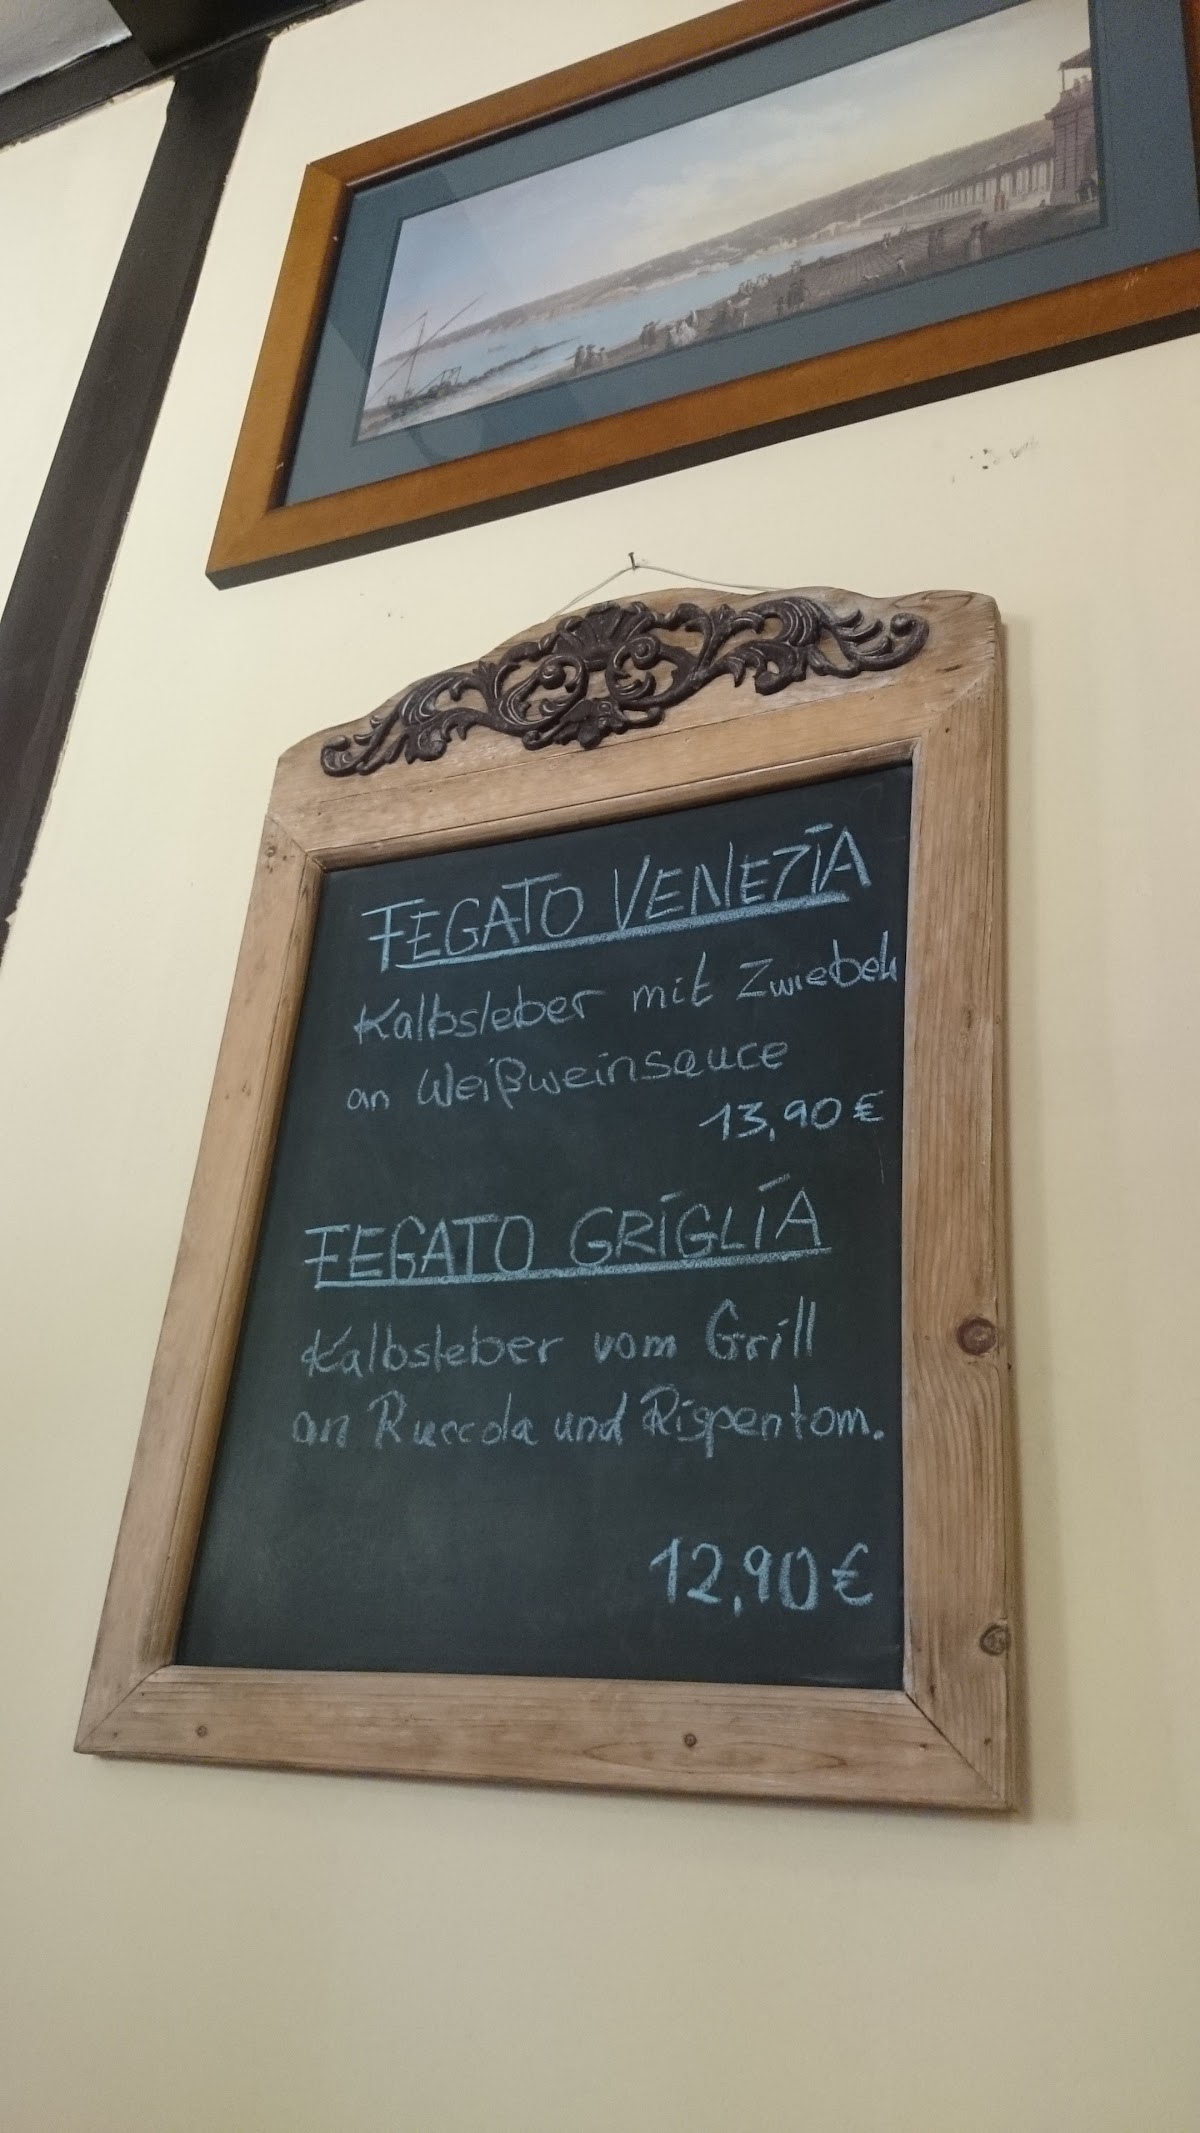 FEGATO VENEZIA
Kalbsleber mit Zwiebeln
an Weißweinsauce
13,90 €
FEGATO GRIGLIA
Kalbsleber vom Grill
an Ruccola und Rispentom.
12,90 €